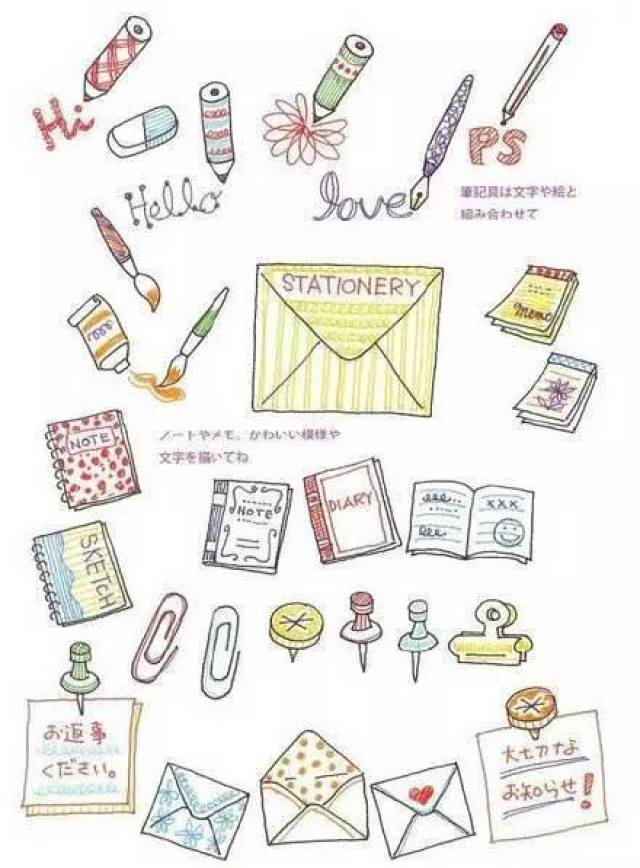 Hi
Hello
love
PS
筆記具は文字や絵と
組み合わせて
STATIONERY
Memo
NOTE
ノートやメモ。かわいい模様や
文字を描いてね
NOTE
DIARY
xxx
SKETCH
お返事
ください。
大切な
お知らせ!